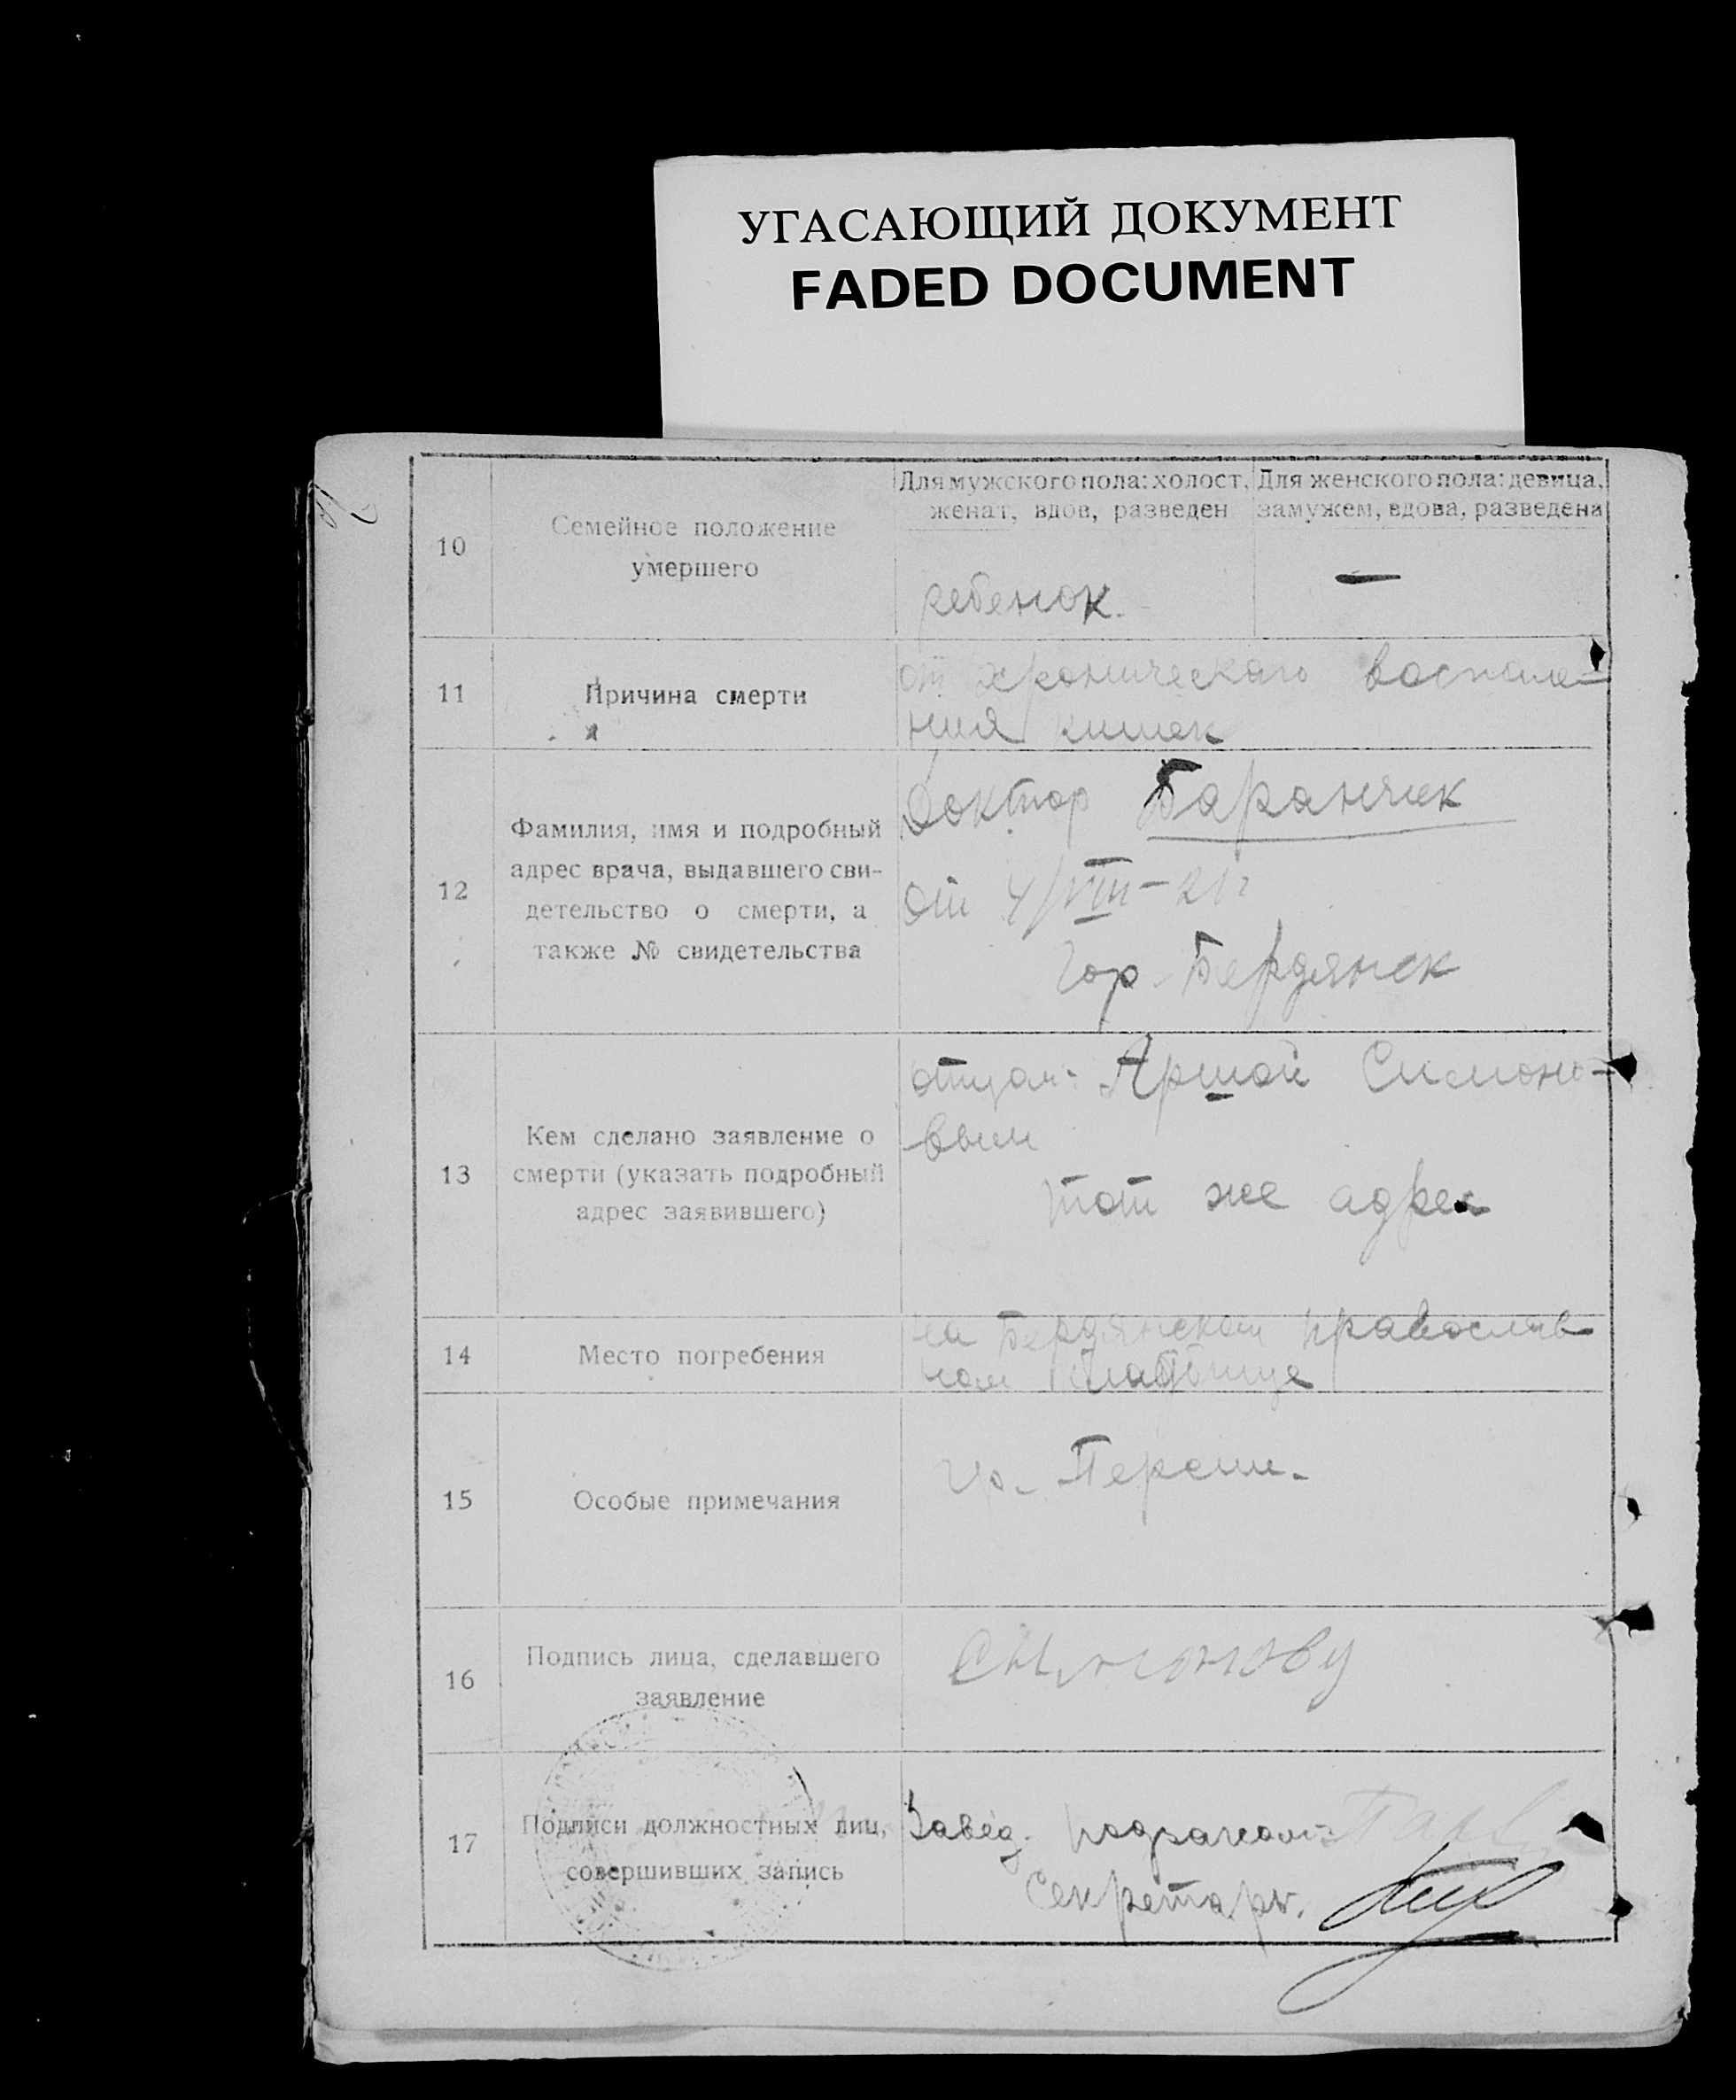 УГАСАЮЩИЙ ДОКУМЕНТ
FADED DOCUMENT
10
Семейное положение
умершего
Для мужского пола: холост,
женат, вдов, разведен
Для женского пола: девица,
замужем, вдова, разведена
ребенок.
—
11
Причина смерти
от хронического воспале-
ния кишек
12
Фамилия, имя и подробный
адрес врача, выдавшего сви-
детельство о смерти, а
также № свидетельства
Доктор Баранчик
от 4/VIII–21г
Гор. Бердянск
13
Кем сделано заявление о
смерти (указать подробный
адрес заявившего)
отцом: Аршой Симоно-
вым
тот же адрес
14
Место погребения
на Бердянском православ
ном кладбище
15
Особые примечания
гр. Персии.
16
Подпись лица, сделавшего
заявление
17
Подписи должностных лиц,
совершивших запись
Завед.
Секретарь.